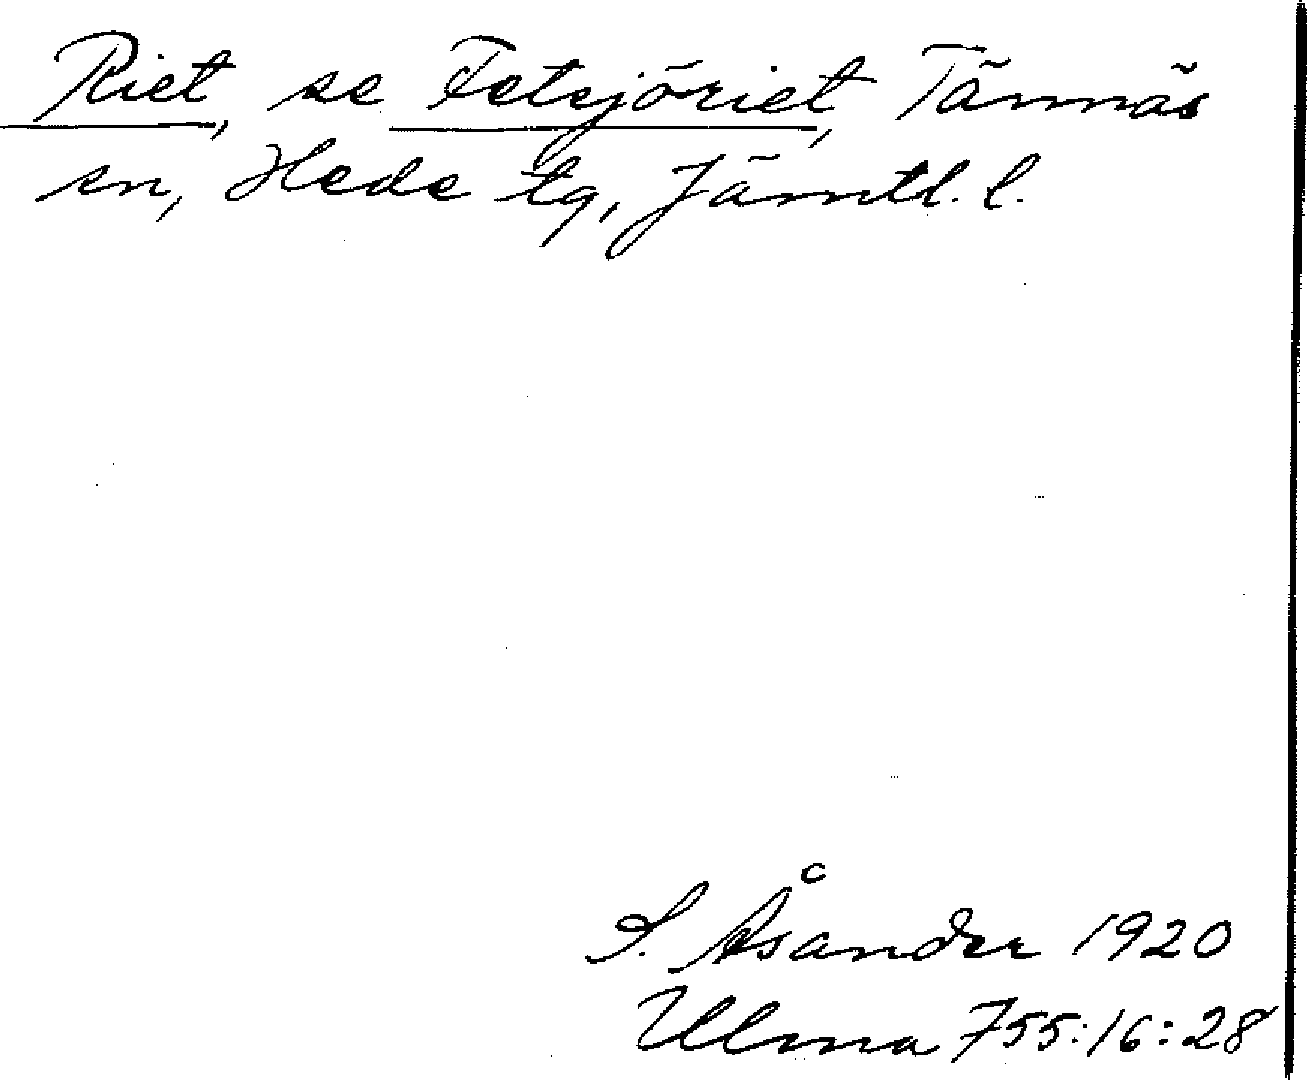 Riet, se Fetsjöriet, Tännäs
sn, Hede tg, Jämtl. l.
S. Åsander 1920
Ulma 755:16:28